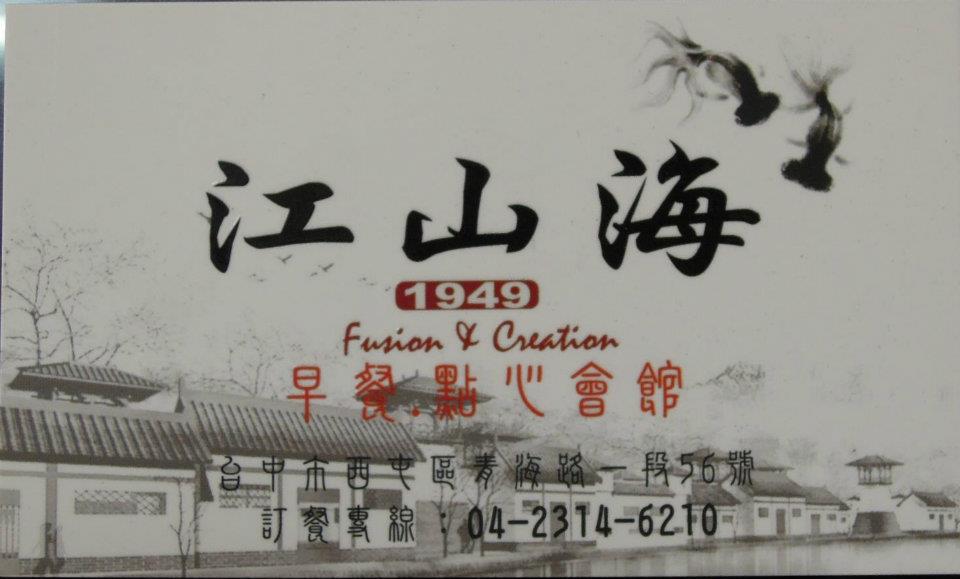 江山海
1949
Fusion & Creation
早餐.點心會館
台中市西屯區青海路一段56號
訂餐專線：04-2314-6210